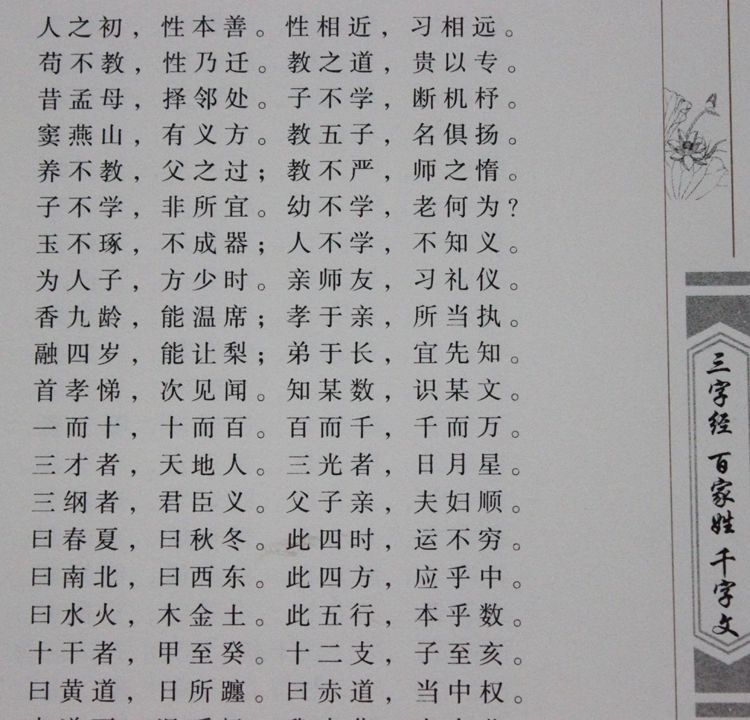 人之初，性本善。性相近，习相远。
苟不教，性乃迁。教之道，贵以专。
昔孟母，择邻处。子不学，断机杼。
窦燕山，有义方。教五子，名俱扬。
养不教，父之过；教不严，师之惰。
子不学，非所宜。幼不学，老何为？
玉不琢，不成器；人不学，不知义。
为人子，方少时。亲师友，习礼仪。
香九龄，能温席；孝于亲，所当执。
融四岁，能让梨；弟于长，宜先知。
首孝悌，次见闻。知某数，识某文。
一而十，十而百。百而千，千而万。
三才者，天地人。三光者，日月星。
三纲者，君臣义。父子亲，夫妇顺。
曰春夏，曰秋冬。此四时，运不穷。
曰南北，曰西东。此四方，应乎中。
曰水火，木金土。此五行，本乎数。
十干者，甲至癸。十二支，子至亥。
曰黄道，日所躔。曰赤道，当中权。
三字经 百家姓 千字文